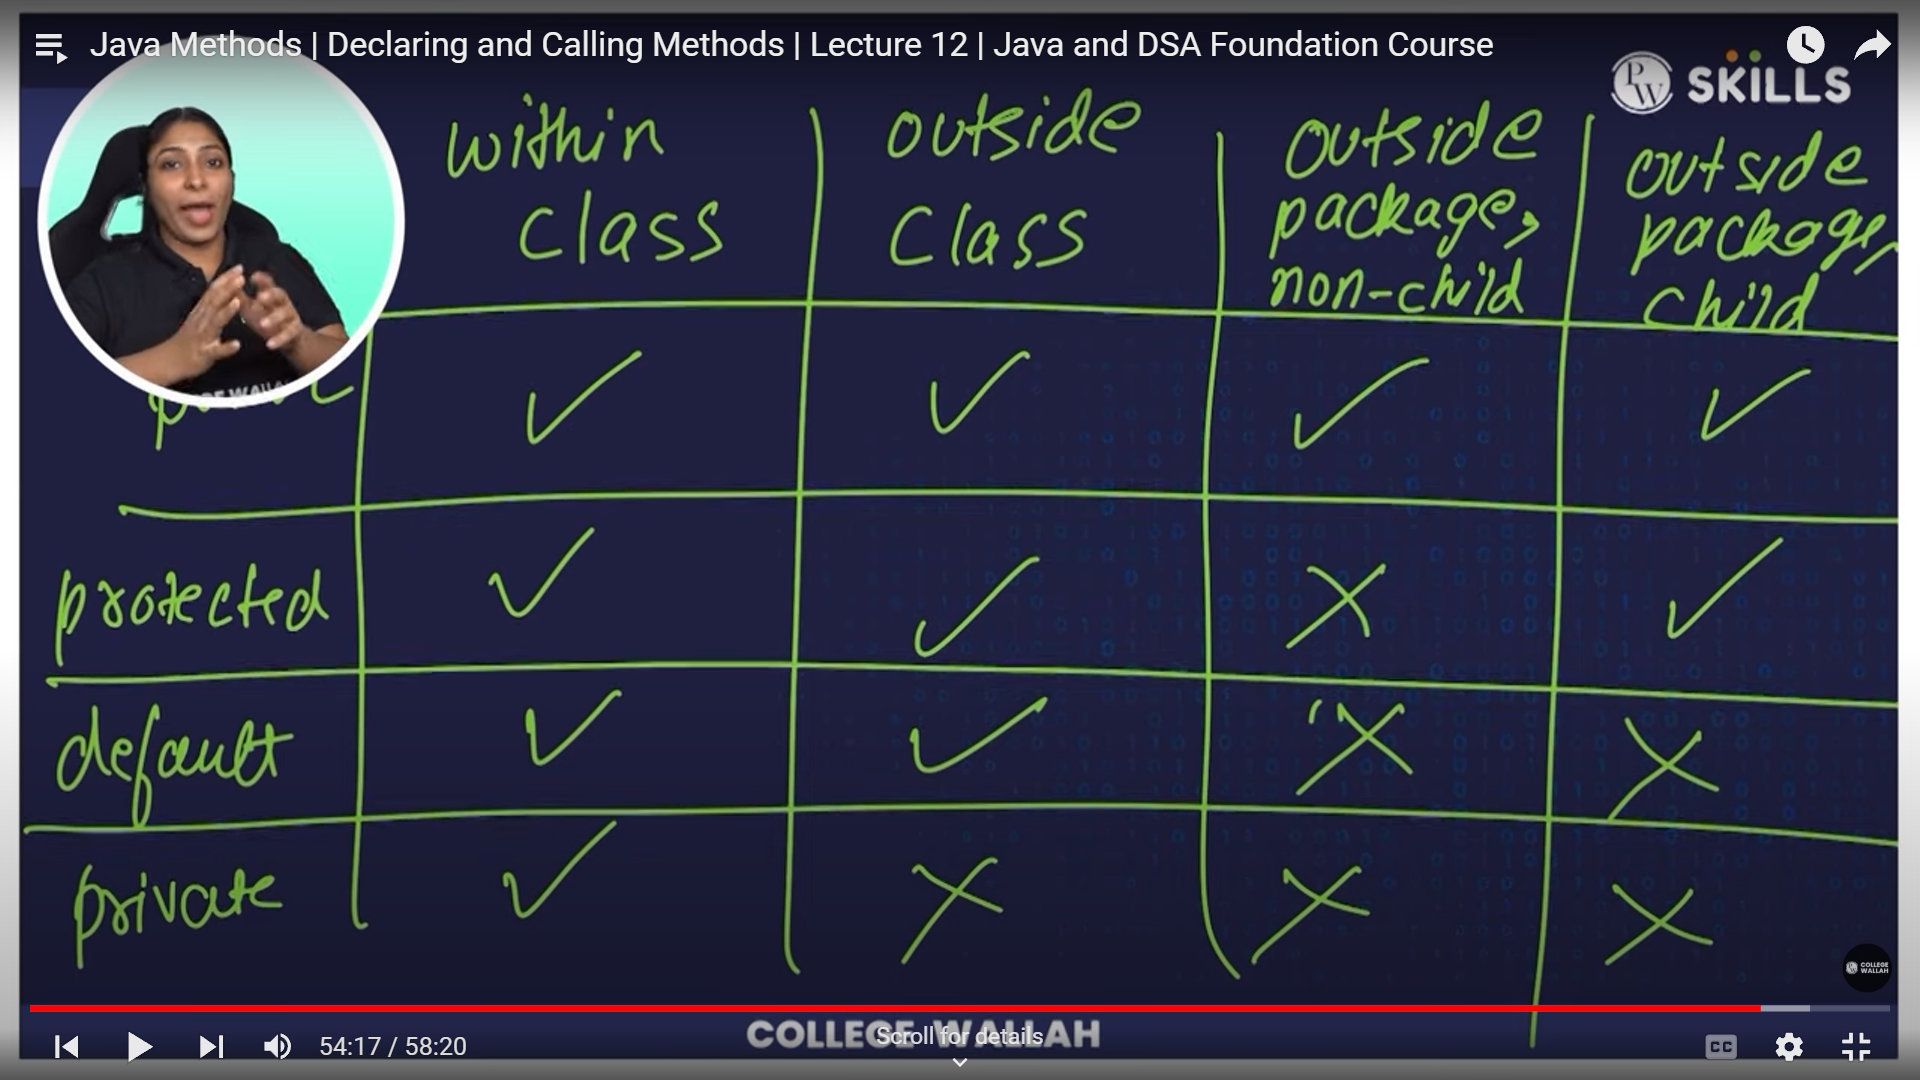 Java Methods | Declaring and Calling Methods | Lecture 12 | Java and DSA Foundation Course
PW SKILLS
within class
outside class
outside package, non-child
outside package, child
protected
default
private
COLLEGE WALLAH
54:17 / 58:20
COLLEGE WALLAH
Scroll for details
CC